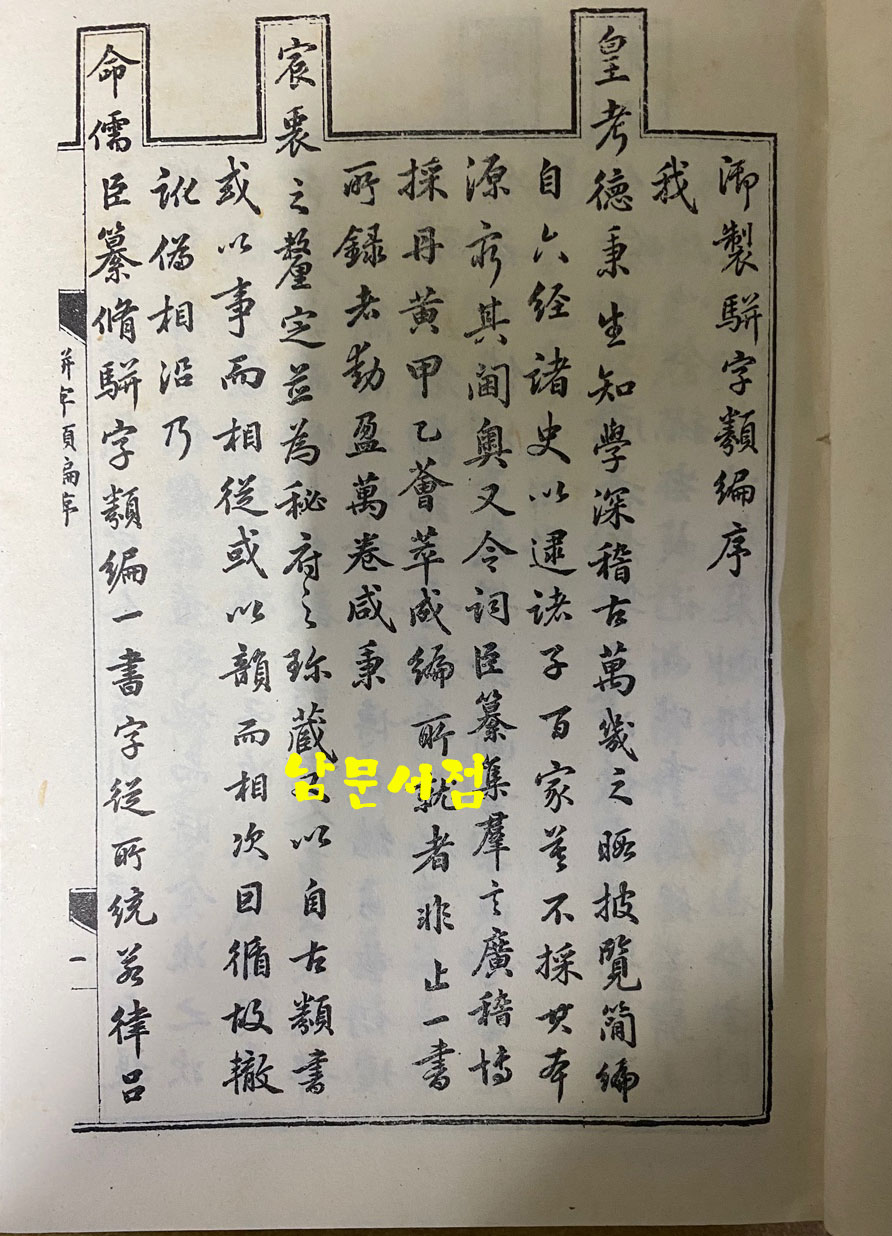 御製駢字類編序
我
皇考德秉生知學深稽古萬幾之暇披覽簡編
自六經諸史以逮諸子百家莫不採其本
源窮其閫奧又令詞臣纂集羣言廣稽博
採丹黃甲乙薈萃成編所就者非止一書
所錄者動盈萬卷咸秉
宸衷之釐定並為秘府之珍藏又以自古類書
或以事而相從或以韻而相次因循故轍
訛偽相沿乃
命儒臣纂脩駢字類編一書字從所統若律呂
駢字類編序
一
남문서점